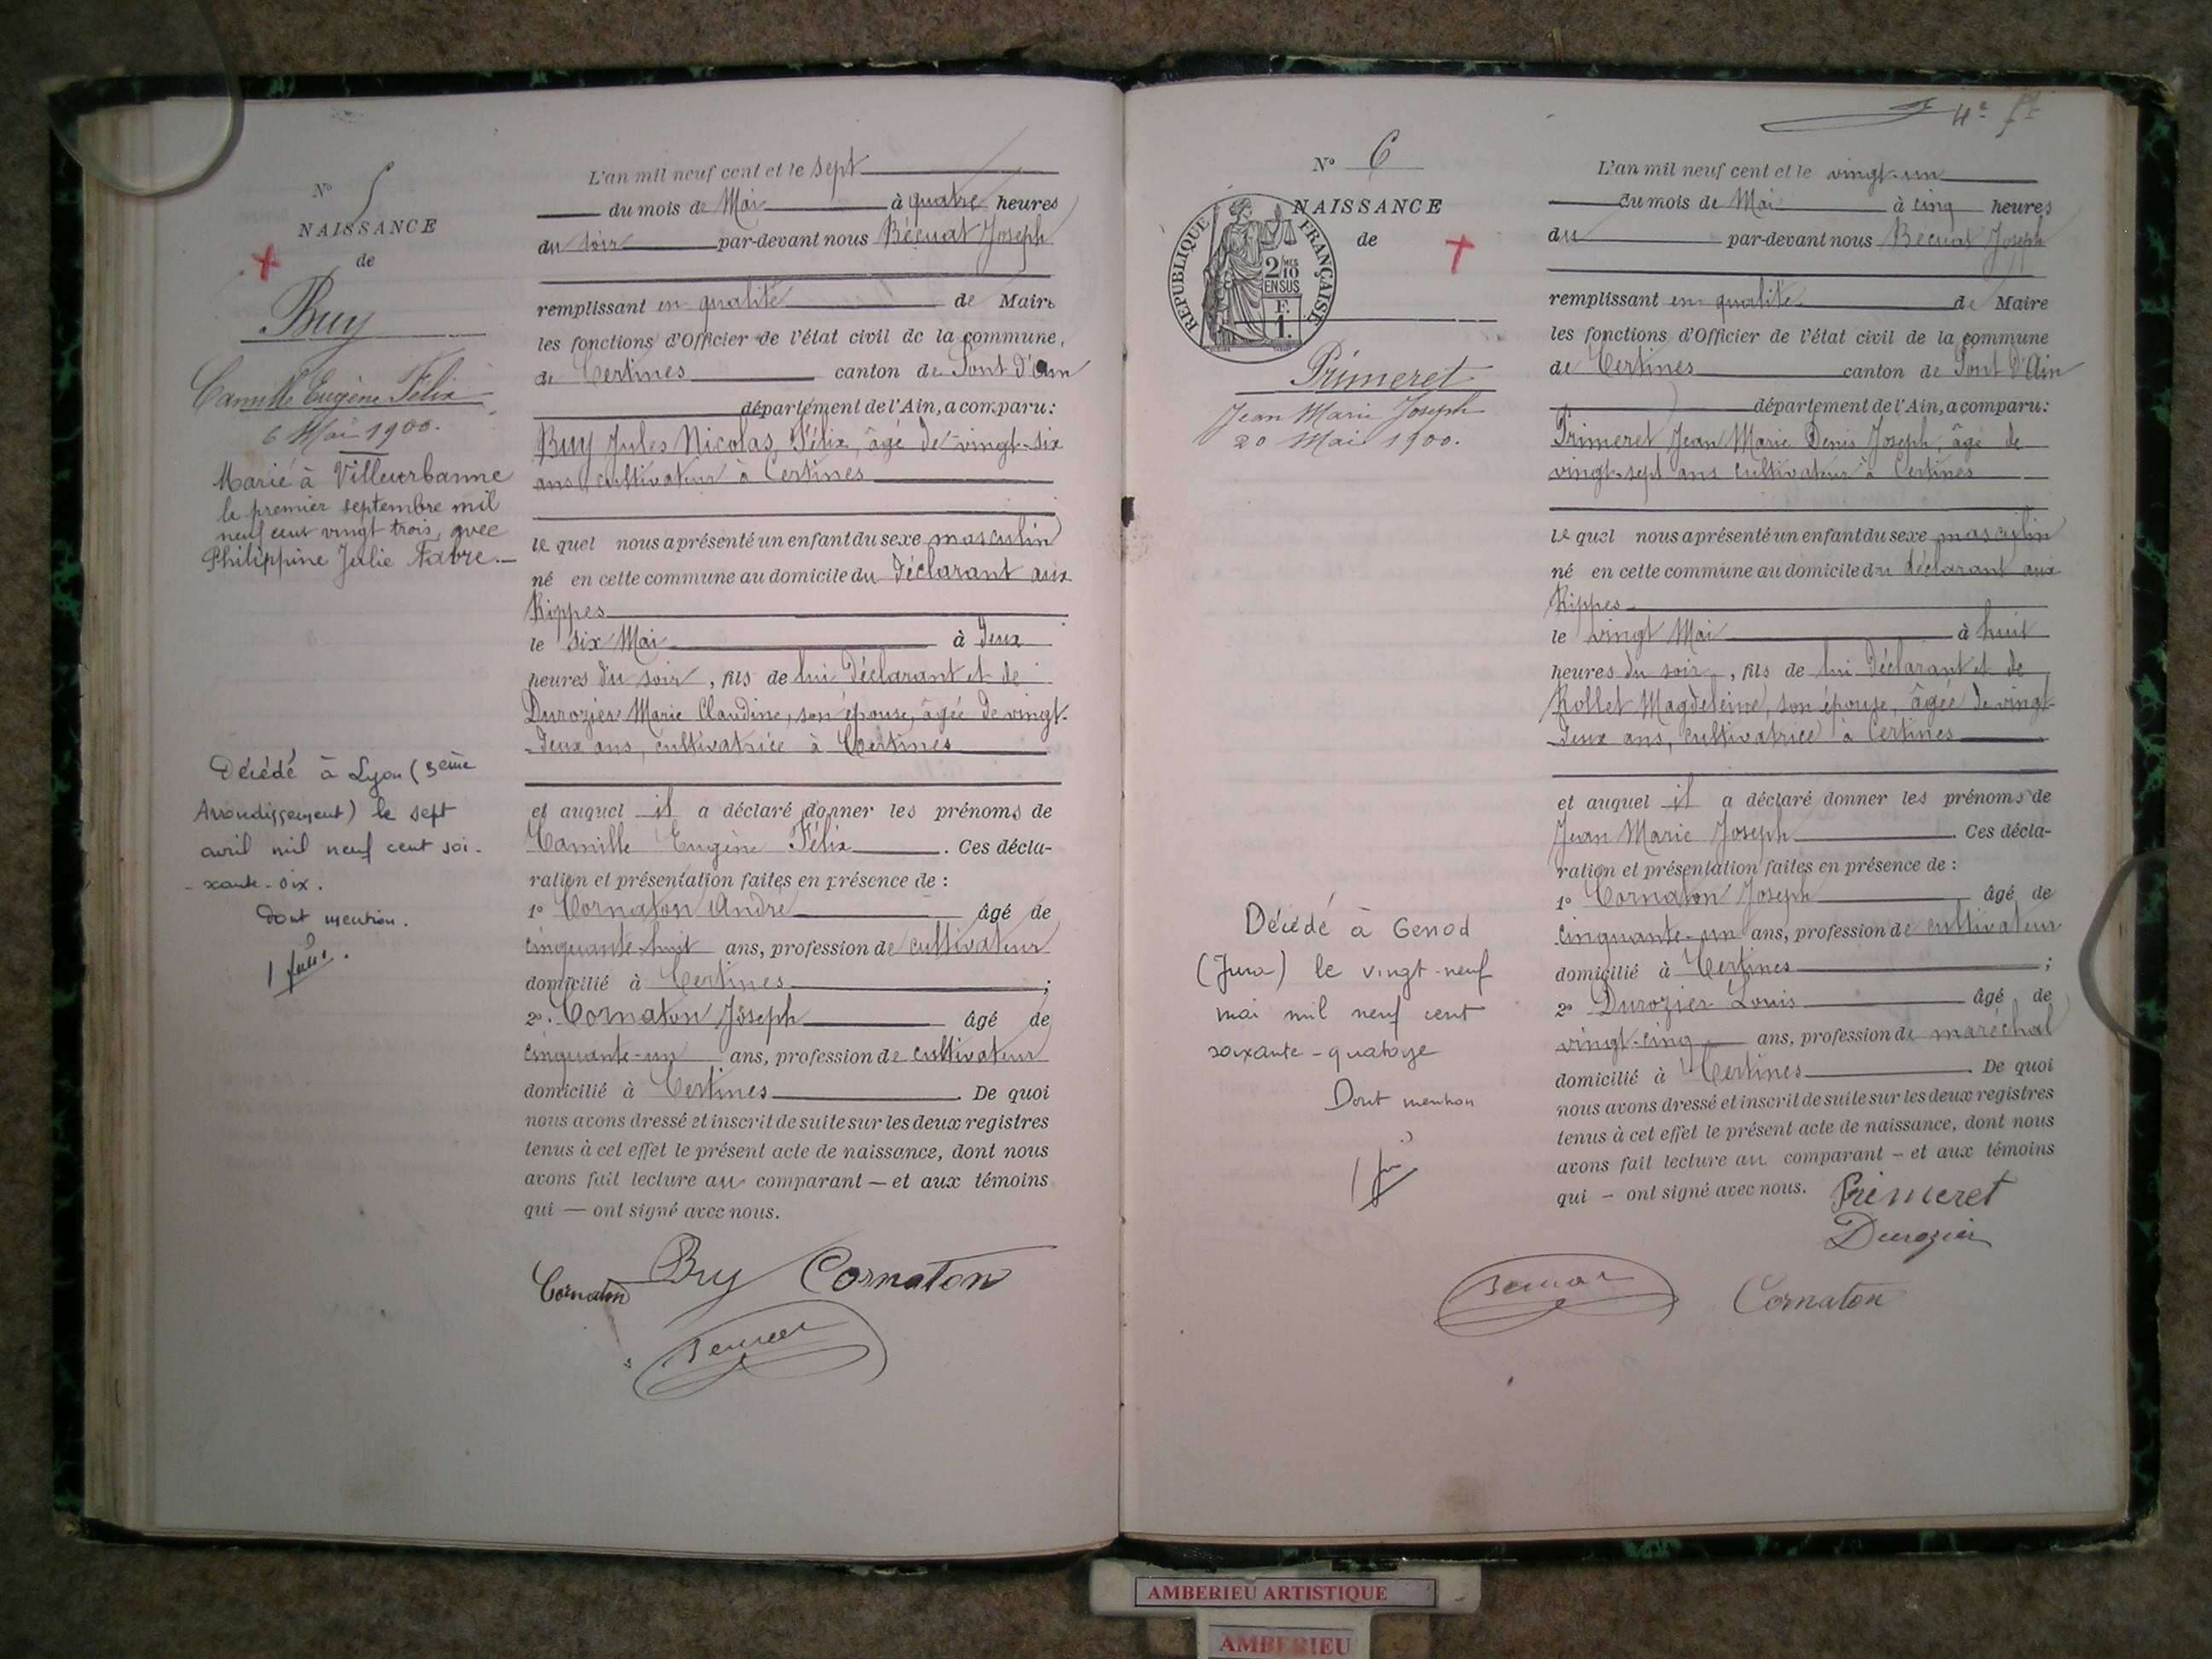 N° 5
NAISSANCE
de
Buy
Camille Eugène Félix
6 Mai 1900.
Marié à Villeurbanne
le premier septembre mil
neuf cent vingt trois, avec
Philippine Julie Fabre.—
Décédé à Lyon (3ème
Arrondissement) le sept
avril mil neuf cent soi-
-xante-six.
Dont mention.
L'an mil neuf cent et le sept
du mois de Mai à quatre heures
du soir par-devant nous Bécuat Joseph
remplissant en qualité de Maire
les fonctions d'Officier de l'état civil de la commune,
de Certines canton de Pont d'Ain
département de l'Ain, a comparu:
Buy Jules Nicolas, Félix, âgé de vingt-six
ans, cultivateur à Certines
lequel nous a présenté un enfant du sexe masculin
né en cette commune au domicile du déclarant aux
Rippes
le six Mai à deux
heures du soir, fils de lui déclarant et de
Durozier Marie Claudine, son épouse, âgée de vingt-
-deux ans, cultivatrice à Certines
et auquel il a déclaré donner les prénoms de
Camille Eugène Félix. Ces décla-
ration et présentation faites en présence de :
1° Cornaton André âgé de
cinquante-huit ans, profession de cultivateur
domicilié à Certines;
2° Cornaton Joseph âgé de
cinquante-un ans, profession de cultivateur
domicilié à Certines. De quoi
nous avons dressé et inscrit de suite sur les deux registres
tenus à cet effet le présent acte de naissance, dont nous
avons fait lecture au comparant — et aux témoins
qui — ont signé avec nous.
Cornaton Buy Cornaton
Bécuat
4e
N° 6
NAISSANCE
de
RÉPUBLIQUE FRANÇAISE
2/10 MES
EN SUS
F.
1.
Primeret
Jean Marie Joseph
20 Mai 1900.
Décédé à Genod
(Jura) le vingt-neuf
mai mil neuf cent
soixante-quatorze
Dont mention
L'an mil neuf cent et le vingt-un
du mois de Mai à cinq heures
du par-devant nous Bécuat Joseph
remplissant en qualité de Maire
les fonctions d'Officier de l'état civil de la commune
de Certines canton de Pont d'Ain
département de l'Ain, a comparu:
Primeret Jean Marie Denis Joseph, âgé de
vingt-sept ans cultivateur à Certines
lequel nous a présenté un enfant du sexe masculin
né en cette commune au domicile du déclarant aux
Rippes
le vingt Mai à huit
heures du soir, fils de lui déclarant et de
Rollet Magdeleine, son épouse, âgée de vingt-
deux ans, cultivatrice à Certines
et auquel il a déclaré donner les prénoms de
Jean Marie Joseph. Ces décla-
ration et présentation faites en présence de :
1° Cornaton Joseph âgé de
cinquante-un ans, profession de cultivateur
domicilié à Certines;
2° Durozier Louis âgé de
vingt-cinq ans, profession de maréchal
domicilié à Certines. De quoi
nous avons dressé et inscrit de suite sur les deux registres
tenus à cet effet le présent acte de naissance, dont nous
avons fait lecture au comparant — et aux témoins
qui — ont signé avec nous. Primeret
Durozier
Bécuat Cornaton
AMBERIEU ARTISTIQUE
AMBERIEU